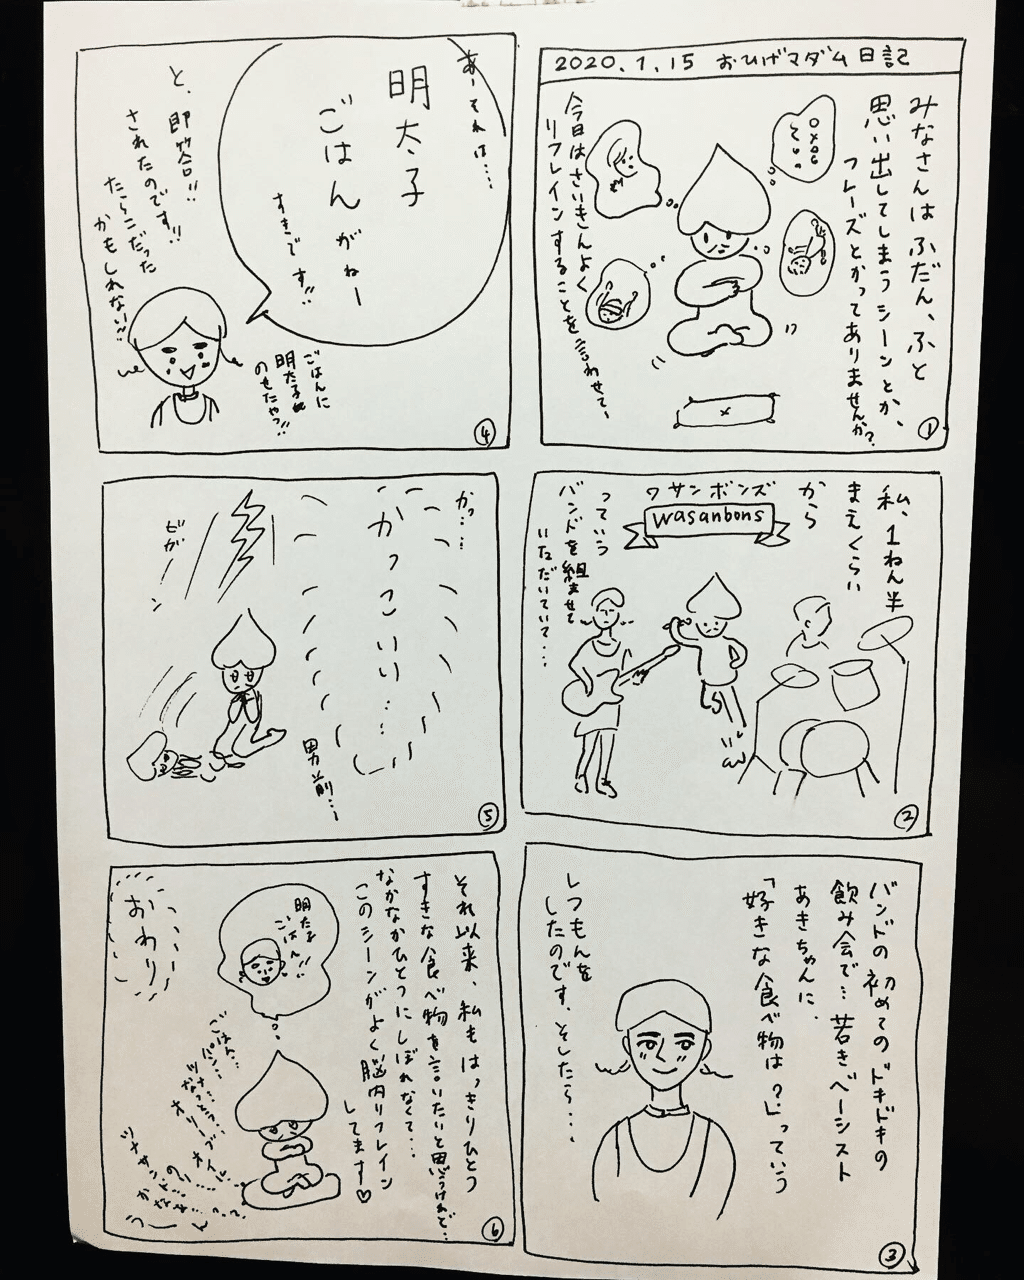 2020.1.15 おひげマダム日記
みなさんはふだん、ふと
思い出してしまうシーンとか、
フレーズとかってありませんか?
今日はさいきんよく
リフレインすることを言わせて、
①
私、1ねん半
まえくらい
から
ワサンボンズ
wasanbons
っていう
バンドを組ませて
いただいていて...
②
バンドの初めてのドキドキの
飲み会で…若きベーシスト
あきちゃんに、
「好きな食べ物は?」っていう
しつもんを
したのです。そしたら...
③
あーそれは....
明太子
ごはんがねー
すきです!!
ごはんに
明太子
のせたやつ!!
と、即答!!
されたのです!!
たらこだった
かもしれない〜
④
かっ....
かっこいい....
男前...
ピガーン
⑤
それ以来、私もはっきりひとつ
すきな食べ物を言いたいと思うけれど..
なかなかひとつにしぼれなくて...
このシーンがよく脳内リフレイン
してます♡
明太子
ごはん!!
ごはん...
パン...
オリーブ
おわり
⑥